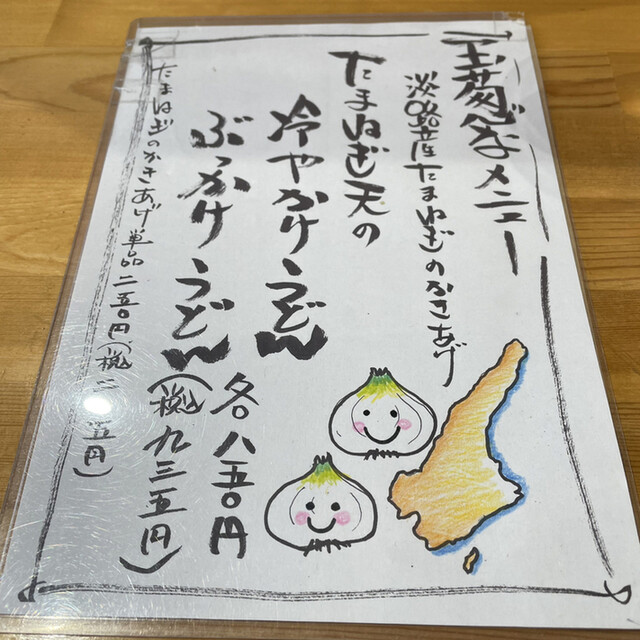 玉葱づくしメニュー
淡路産たまねぎのかきあげ
たまねぎ天の
冷やかけうどん
ぶっかけうどん
各八五〇円
(税込九三五円)
たまねぎのかきあげ単品二五〇円(税込二 五円)